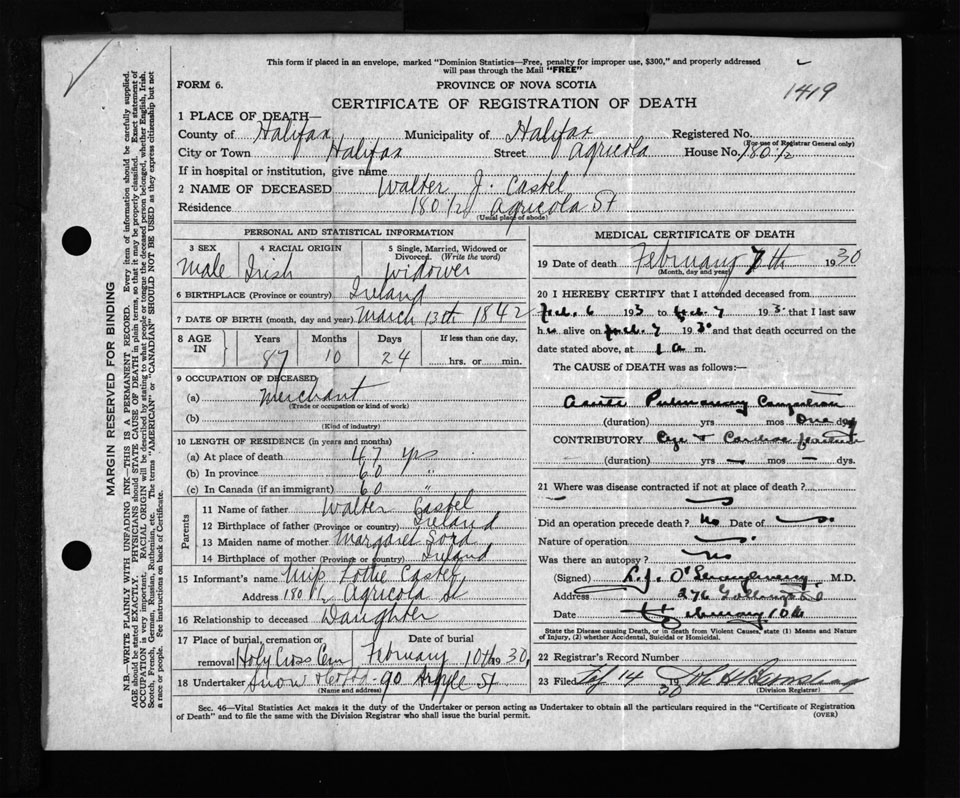 This form if placed in an envelope, marked "Dominion Statistics—Free, penalty for improper use, $300," and properly addressed
will pass through the Mail "FREE"
FORM 6.
PROVINCE OF NOVA SCOTIA
1419
CERTIFICATE OF REGISTRATION OF DEATH
1 PLACE OF DEATH—
County of Halifax Municipality of Halifax Registered No.
(For use of Registrar General only)
City or Town Halifax Street Agricola House No. 180 1/2
If in hospital or institution, give name
2 NAME OF DECEASED Walter J. Castel
Residence 180 1/2 Agricola St
(Usual place of abode)
PERSONAL AND STATISTICAL INFORMATION
3 SEX 4 RACIAL ORIGIN 5 Single, Married, Widowed or Divorced. (Write the word)
Male Irish widower
6 BIRTHPLACE (Province or country) Ireland
7 DATE OF BIRTH (month, day and year) March 13th 1842
8 AGE IN Years Months Days If less than one day,
87 10 24 hrs. or min.
9 OCCUPATION OF DECEASED
(a) Merchant
(Trade or occupation or kind of work)
(b)
(Kind of industry)
10 LENGTH OF RESIDENCE (in years and months)
(a) At place of death 47 yrs
(b) In province 60 "
(c) In Canada (if an immigrant) 60 "
Parents
11 Name of father Walter Castel
12 Birthplace of father (Province or country) Ireland
13 Maiden name of mother Margaret
14 Birthplace of mother (Province or country) Ireland
15 Informant's name Miss Lottie Castel
Address 180 1/2 Agricola St
16 Relationship to deceased Daughter
17 Place of burial, cremation or removal Date of burial
Holy Cross Cem February 10th 1930
18 Undertaker Snow 90 Argyle St
(Name and address)
MEDICAL CERTIFICATE OF DEATH
19 Date of death February 7th 1930
(Month, day and year)
20 I HEREBY CERTIFY that I attended deceased from
Feb. 6 193 to Feb. 7 193 that I last saw
h alive on Feb. 7 193 and that death occurred on the
date stated above, at 1 a m.
The CAUSE of DEATH was as follows:—
Acute Pulmonary Congestion
(duration) yrs mos One dys
CONTRIBUTORY Age + Cardiac
(duration) yrs — mos — dys.
21 Where was disease contracted if not at place of death?
Did an operation precede death? No Date of
Nature of operation
Was there an autopsy? No
(Signed) M.D.
Address 276 Gottingen St
Date February 10th
State the Disease causing Death, or in death from Violent Causes, state (1) Means and Nature
of Injury, (2) whether Accidental, Suicidal or Homicidal.
22 Registrar's Record Number
23 Filed Feb 14 1930
(Division Registrar)
Sec. 46—Vital Statistics Act makes it the duty of the Undertaker or person acting as Undertaker to obtain all the particulars required in the "Certificate of Registration
of Death" and to file the same with the Division Registrar who shall issue the burial permit.
(OVER)
MARGIN RESERVED FOR BINDING
N.B.—WRITE PLAINLY WITH UNFADING INK—THIS IS A PERMANENT RECORD. Every item of information should be carefully supplied.
AGE should be stated EXACTLY. PHYSICIANS should STATE CAUSE OF DEATH in plain terms, so that it may be properly classified. Exact statement of
OCCUPATION is very important. RACIAL ORIGIN will be described by stating to what people or tongue the deceased person belonged, whether English, Irish,
Scotch, French, German, Russian, Ruthenian, etc. The terms "AMERICAN" or "CANADIAN" SHOULD NOT BE USED as they express citizenship but not
a race or people. See instructions on back of Certificate.